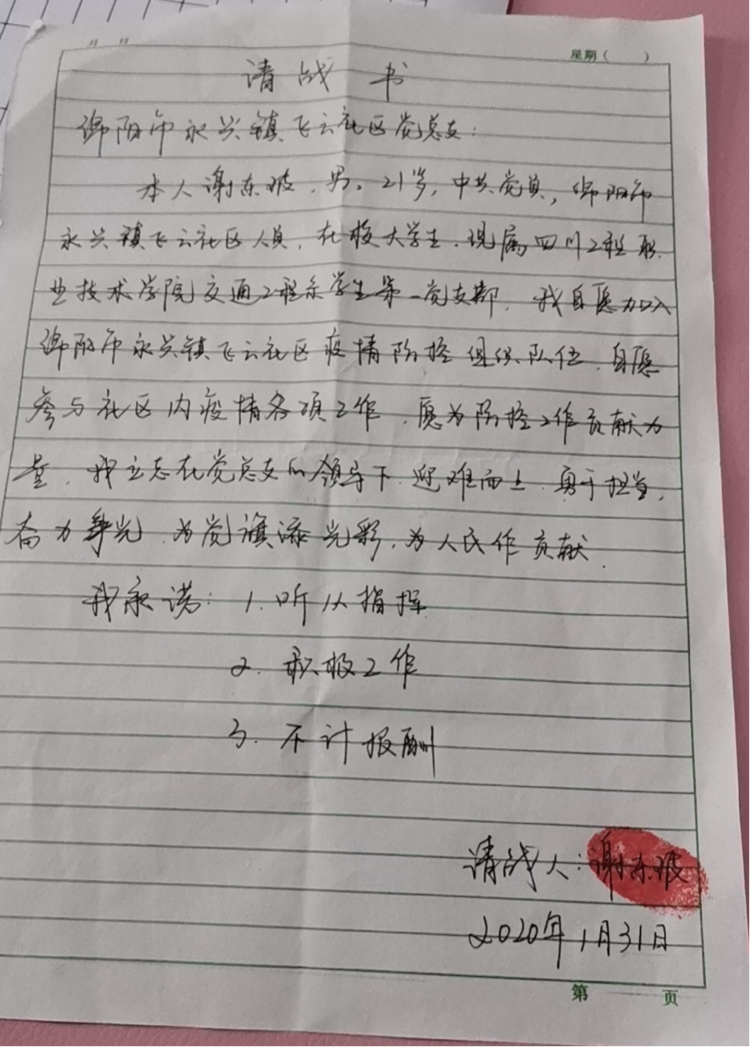 星期（ ）
请战书
绵阳市永兴镇飞云社区党总支：
本人谢东坡，男，21岁，中共党员，绵阳市
永兴镇飞云社区人员，在校大学生，现属四川工程职
业技术学院交通工程系学生第一党支部，我自愿加入
绵阳市永兴镇飞云社区疫情防控组织队伍，自愿
参与社区内疫情各项工作，愿为防控工作贡献力
量，我立志在党总支的领导下，迎难而上，勇于担当，
奋力争先，为党旗添光彩，为人民作贡献.
我承诺：1.听从指挥
2.积极工作
3.不计报酬
请战人：谢东坡
2020年1月31日
第 页